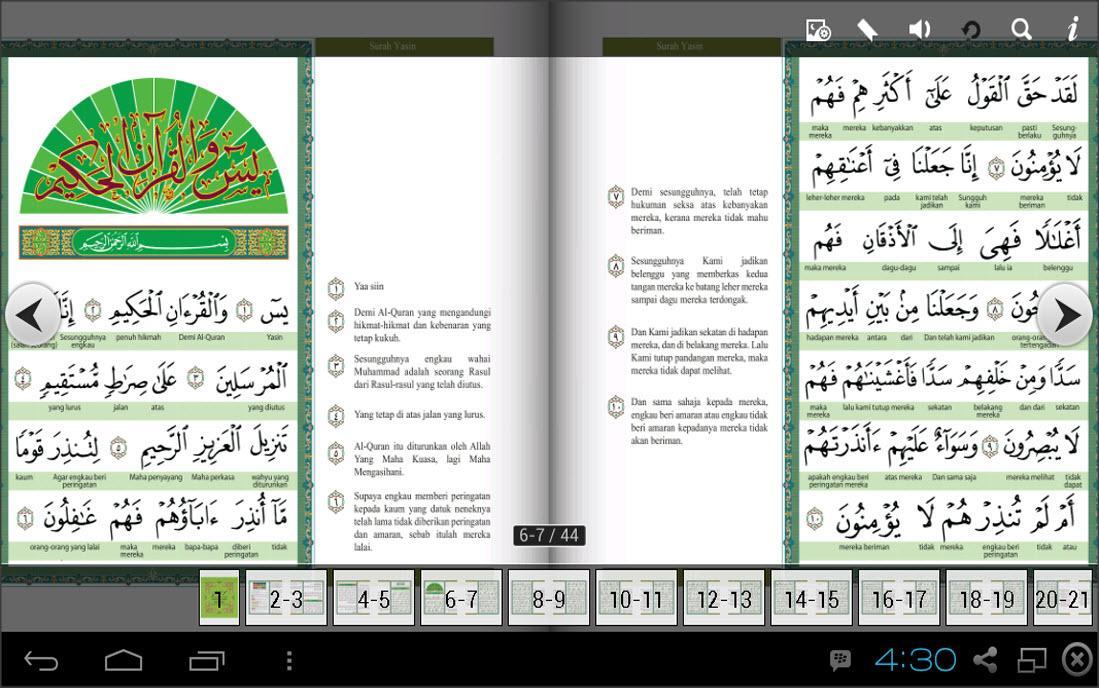 Surah Yasin
Surah Yasin
يسٓ وَالْقُرْآنِ الْحَكِيمِ
بِسْمِ اللَّهِ الرَّحْمَٰنِ الرَّحِيمِ
يسٓ ١ وَالْقُرْءَانِ الْحَكِيمِ ٢ إِنَّكَ
Yasin Demi Al-Quran penuh hikmah Sesungguhnya engkau (salah seorang)
الْمُرْسَلِينَ ٣ عَلَىٰ صِرَٰطٍ مُّسْتَقِيمٍ ٤
yang diutus atas jalan yang lurus
تَنزِيلَ الْعَزِيزِ الرَّحِيمِ ٥ لِتُنذِرَ قَوْمًا
wahyu yang diturunkan Maha perkasa Maha penyayang Agar engkau beri peringatan kaum
مَّآ أُنذِرَ ءَابَآؤُهُمْ فَهُمْ غَٰفِلُونَ ٦
tidak diberi peringatan bapa-bapa mereka maka mereka orang-orang yang lalai
١ Yaa siin
٢ Demi Al-Quran yang mengandungi
hikmat-hikmat dan kebenaran yang
tetap kukuh.
٣ Sesungguhnya engkau wahai
Muhammad adalah seorang Rasul
dari Rasul-rasul yang telah diutus.
٤ Yang tetap di atas jalan yang lurus.
٥ Al-Quran itu diturunkan oleh Allah
Yang Maha Kuasa, lagi Maha
Mengasihani.
٦ Supaya engkau memberi peringatan
kepada kaum yang datuk neneknya
telah lama tidak diberikan peringatan
dan amaran, sebab itulah mereka
lalai.
٧ Demi sesungguhnya, telah tetap
hukuman seksa atas kebanyakan
mereka, kerana mereka tidak mahu
beriman.
٨ Sesungguhnya Kami jadikan
belenggu yang memberkas kedua
tangan mereka ke batang leher mereka
sampai dagu mereka terdongak.
٩ Dan Kami jadikan sekatan di hadapan
mereka, dan di belakang mereka. Lalu
Kami tutup pandangan mereka, maka
mereka tidak dapat melihat.
١٠ Dan sama sahaja kepada mereka,
engkau beri amaran atau engkau tidak
beri amaran kepadanya mereka tidak
akan beriman.
لَقَدْ حَقَّ الْقَوْلُ عَلَىٰٓ أَكْثَرِهِمْ فَهُمْ
Sesung-guhnya pasti berlaku keputusan atas kebanyakkan mereka maka mereka
لَا يُؤْمِنُونَ ٧ إِنَّا جَعَلْنَا فِىٓ أَعْنَٰقِهِمْ
tidak mereka beriman Sungguh kami kami telah jadikan pada leher-leher mereka
أَغْلَٰلًا فَهِىَ إِلَى الْأَذْقَانِ فَهُم
belenggu lalu ia sampai dagu-dagu maka mereka
٨ وَجَعَلْنَا مِنۢ بَيْنِ أَيْدِيهِمْ
tertengadah Dan telah kami jadikan dari antara hadapan mereka
سَدًّا وَمِنْ خَلْفِهِمْ سَدًّا فَأَغْشَيْنَٰهُمْ فَهُمْ
sekatan dan dari belakang mereka sekatan lalu kami tutup mereka maka mereka
لَا يُبْصِرُونَ ٩ وَسَوَآءٌ عَلَيْهِمْ ءَأَنذَرْتَهُمْ
tidak dapat mereka melihat Dan sama saja atas mereka apakah engkau beri peringatan mereka
أَمْ لَمْ تُنذِرْهُمْ لَا يُؤْمِنُونَ ١٠
atau tidak engkau beri peringatan mereka tidak mereka beriman
6-7 / 44
1 2-3 4-5 6-7 8-9 10-11 12-13 14-15 16-17 18-19 20-21
4:30